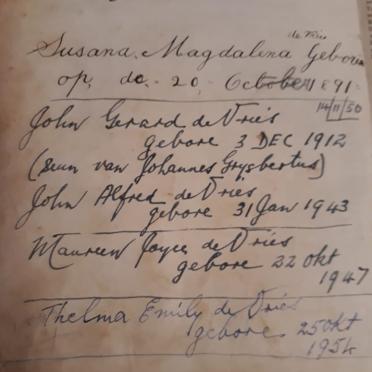 de Vries
Susana Magdalena Geboren
op de 20 October 1891
14/11/50
John Gerard de Vries
gebore 3 DEC 1912
(seun van Johannes Grysbertus)
John Alfred de Vries
gebore 31 Jan 1943
Maureen Joyce de Vries
gebore 22 Okt
1947
Thelma Emily de Vries
gebore 25 Okt
1954